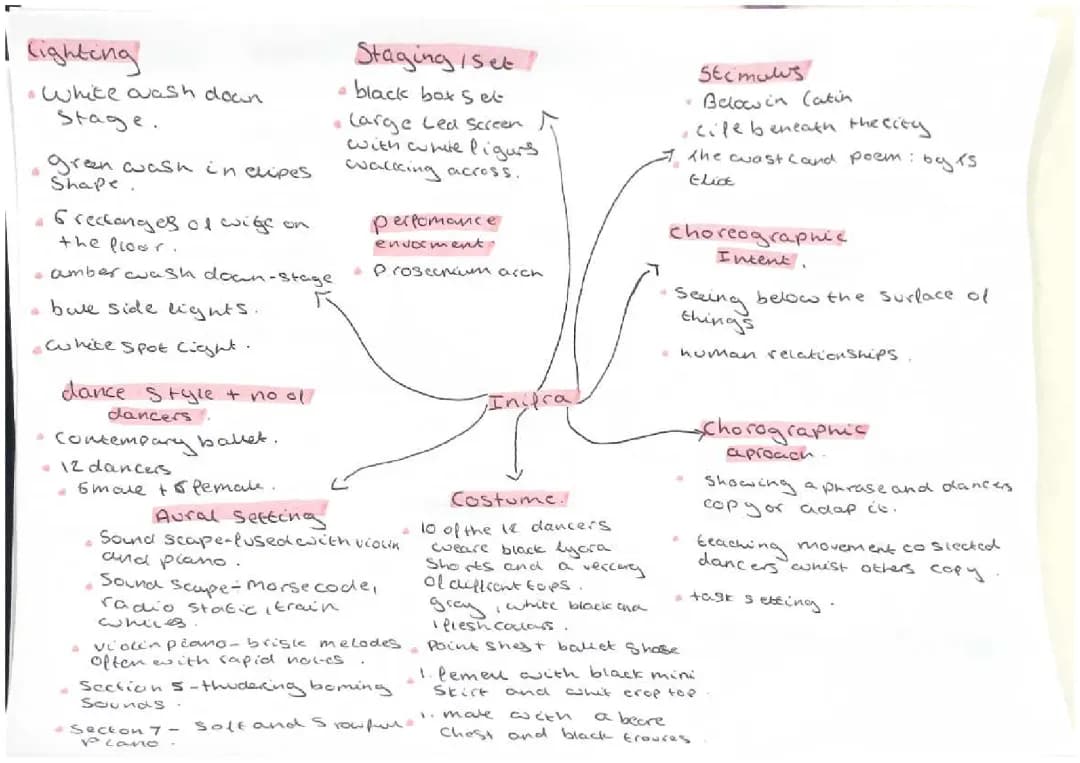 Lighting
• White wash down
stage.
• green wash in elipes
Shape.
• 6 rectanges of wite on
the floor.
• amber wash down-stage
• bule side lights.
• white spot light.
Staging/Set
• black box set
• Large Led screen
with white figurs
walking across.
perfomance
enviorment.
• Prosecnium arch
Stimulus
• Below in latin
• life beneath the city
• The wasteland poem: by TS
Eliot
Choreographic
Intent.
• Seeing below the surface of
things
• human relationships.
Inifra
dance style + no of
dancers.
• Contempary ballet.
• 12 dancers
• 6 male + 6 female.
Chorographic
aproach.
• showing a phrase and dancers
copy or adap it.
• teaching movement to slected
dancers whist others copy.
• task setting.
Aural Setting
• Sound scape-fused with violin
and piano.
• Sound scape - morse code,
radio static, train
• violin piano - brisk melodes
often with rapid notes.
• Section 5 - thudering boming
sounds.
• Secton 7 - Soft and Srowful
Piano.
Costume.
• 10 of the 12 dancers
weare black lycra
shorts and a
of diffrent tops.
gray, white black and
flesh colours.
• Point shes + ballet shose
• 1. femeu with black mini
skirt and whit crop top.
• 1. male with a beare
chest and black trouces.